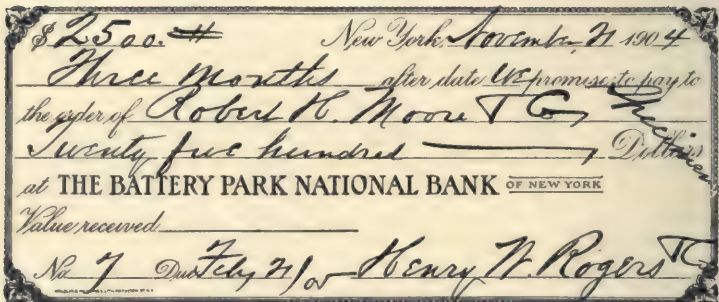 $2500.# New York, November 21 1904
Three months after date we promise to pay to
the order of Robert H. Moore & Co
Twenty five hundred Dollars
at THE BATTERY PARK NATIONAL BANK OF NEW YORK
Value received
No. 7 Due Feby 21/05 Henry W. Rogers & Co